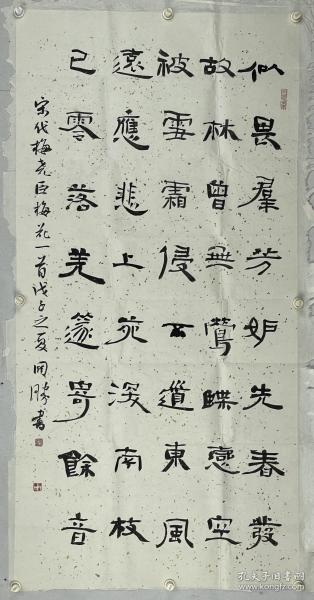 似畏羣芳妒先春發
故林曾無鶯蝶戀空
被雪霜侵不道東風
遠應悲上苑深南枝
已零落羌篴寄餘音
宋代梅堯臣梅花一首戊子之夏勝書
孔夫子旧书网